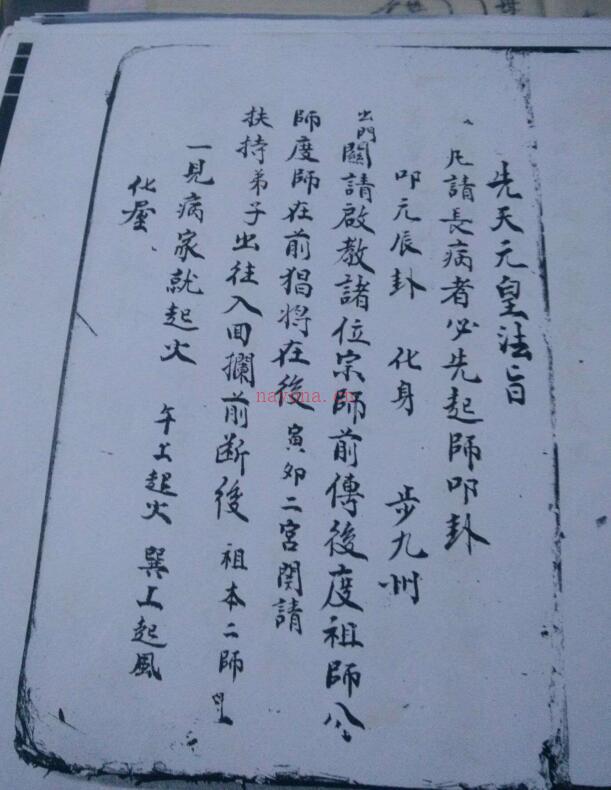 先天元皇法旨
凡請長病者必先起師叩卦
叩元辰卦 化身 步九州
出門關請啟教諸位宗師前傳後度祖師公
師度師在前猖將在後 寅卯二宮関請
扶持弟子出往入回攔前斷後 祖本二師
一見病家就起火 午上起火 巽上起風
化屋